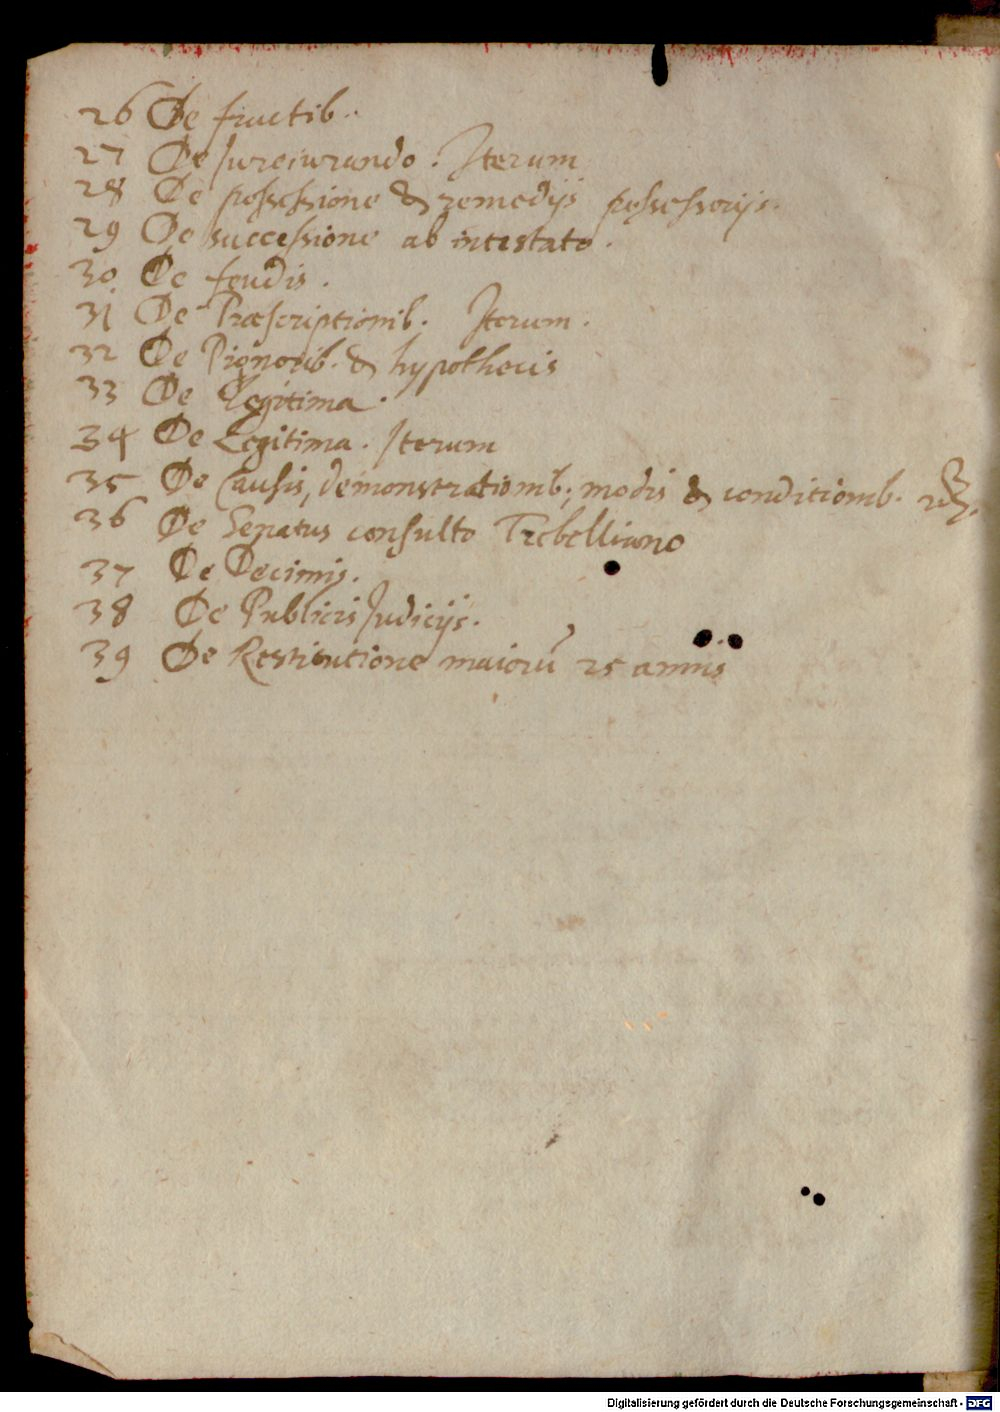 26 De fructib.
27 De Jureiurando. Iterum
28 De possessione & remedijs possessorijs.
29 De successione ab intestato.
30 De feudis.
31 De Præscriptionib. Iterum.
32 De Pignorib. & hypothecis
33 De Legitima.
34 De Legitima. Iterum
35 De Causis, demonstrationib, modis & conditionib.
36 De Senatus consulto Trebelliano
37 De Decimis.
38 De Publicis Judicijs.
39 De Restitutione maiorū 25 annis
Digitalisierung gefördert durch die Deutsche Forschungsgemeinschaft - DFG